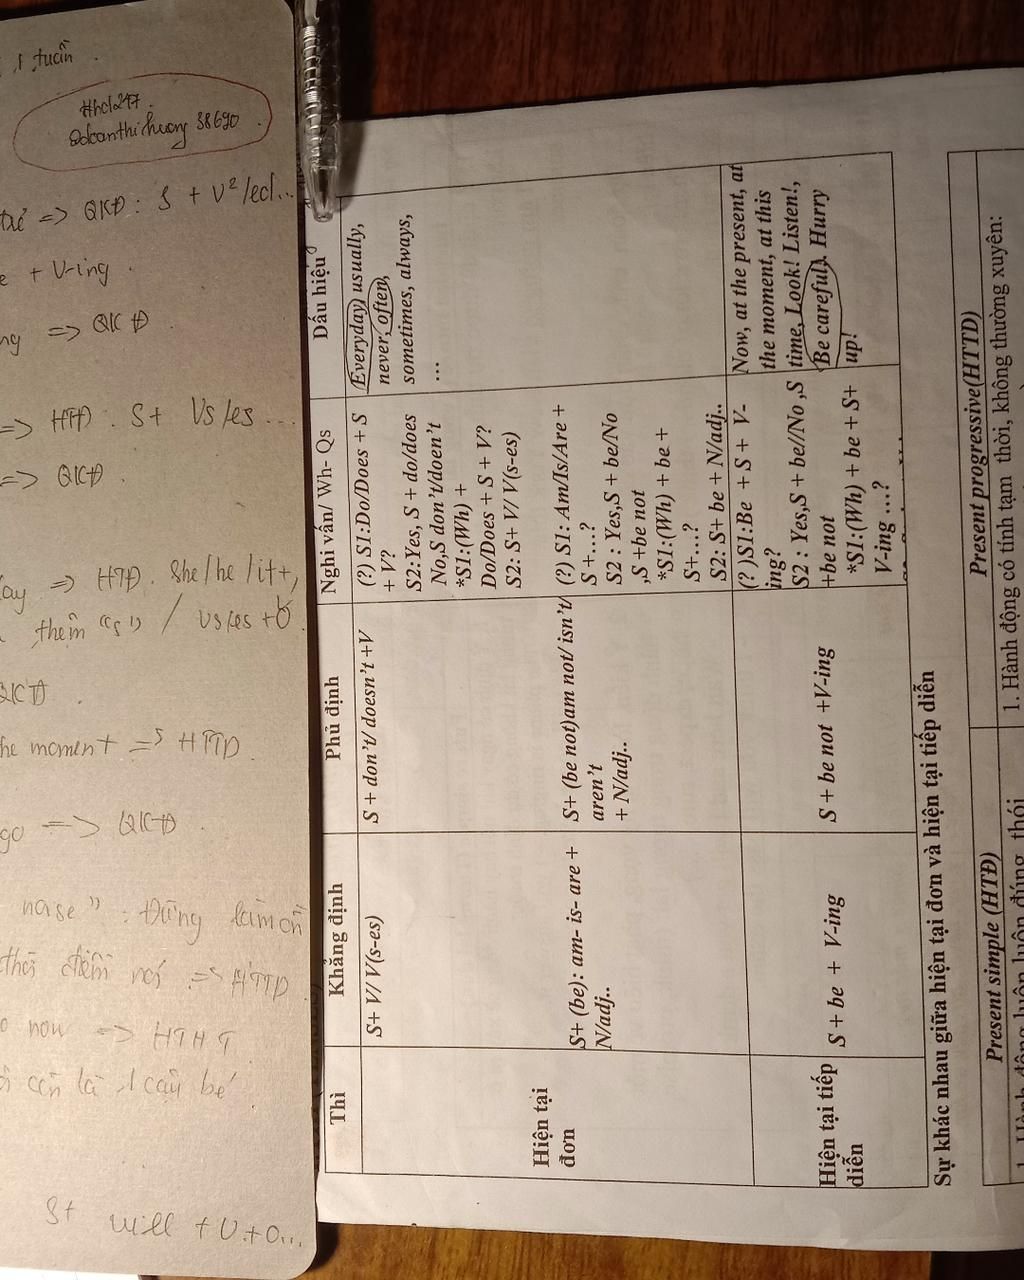 1 tuần.
Hhcl247.
Odoanthihuong 38690.
=> QKĐ: S + V2/ed...
+ V-ing.
=> QKĐ.
=> HTĐ: S + Vs/es...
=> QKĐ.
=> HTĐ. She/he/it +,
thêm "s" / Vs/es + O.
QKĐ.
he moment => HTTD.
go => QKĐ.
noise": Đừng làm ồn
thời điểm nói => HTTD.
now => HTHT
còn là 1 cậu bé.
S+ will + V.+O...
Thì
Khẳng định
Phủ định
Nghi vấn/ Wh- Qs
Dấu hiệu
Hiện tại
đơn
S+ V/ V(s-es)
S + don't/ doesn't +V
(?) S1:Do/Does + S
+ V?
S2:Yes, S + do/does
No,S don't/doen't
*S1:(Wh) +
Do/Does + S + V?
S2: S+ V/ V(s-es)
Everyday, usually,
never, often,
sometimes, always,
...
S+ (be): am- is- are +
N/adj..
S+ (be not)am not/ isn't/
aren't
+ N/adj..
(?) S1: Am/Is/Are +
S +...?
S2 : Yes,S + be/No
,S +be not
*S1:(Wh) + be +
S+...?
S2: S+ be + N/adj..
Hiện tại tiếp
diễn
S + be + V-ing
S + be not +V-ing
(? )S1:Be + S + V-
ing?
S2 : Yes,S + be//No ,S
+be not
*S1:(Wh) + be + S+
V-ing ...?
Now, at the present, at
the moment, at this
time, Look! Listen!,
Be careful!. Hurry
up!
Sự khác nhau giữa hiện tại đơn và hiện tại tiếp diễn
Present simple (HTĐ)
Present progressive(HTTD)
1. Hành động luôn luôn đúng, thói
1. Hành động có tính tạm thời, không thường xuyên: